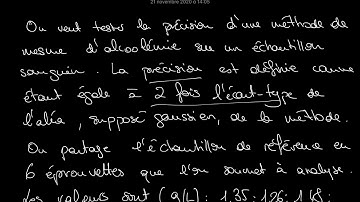 21 novembre 2020 à 14:05
On veut tester la précision d'une méthode de
mesure d'alcoolémie sur un échantillon
sanguin. La précision est définie comme
étant égale à 2 fois l'écart-type de
l'aléa, supposé gaussien, de la méthode.
On partage l'échantillon de référence en
6 éprouvettes que l'on soumet à analyse.
Les valeurs sont (g/L) : 1,35 ; 1,26 ; 1,48 ;